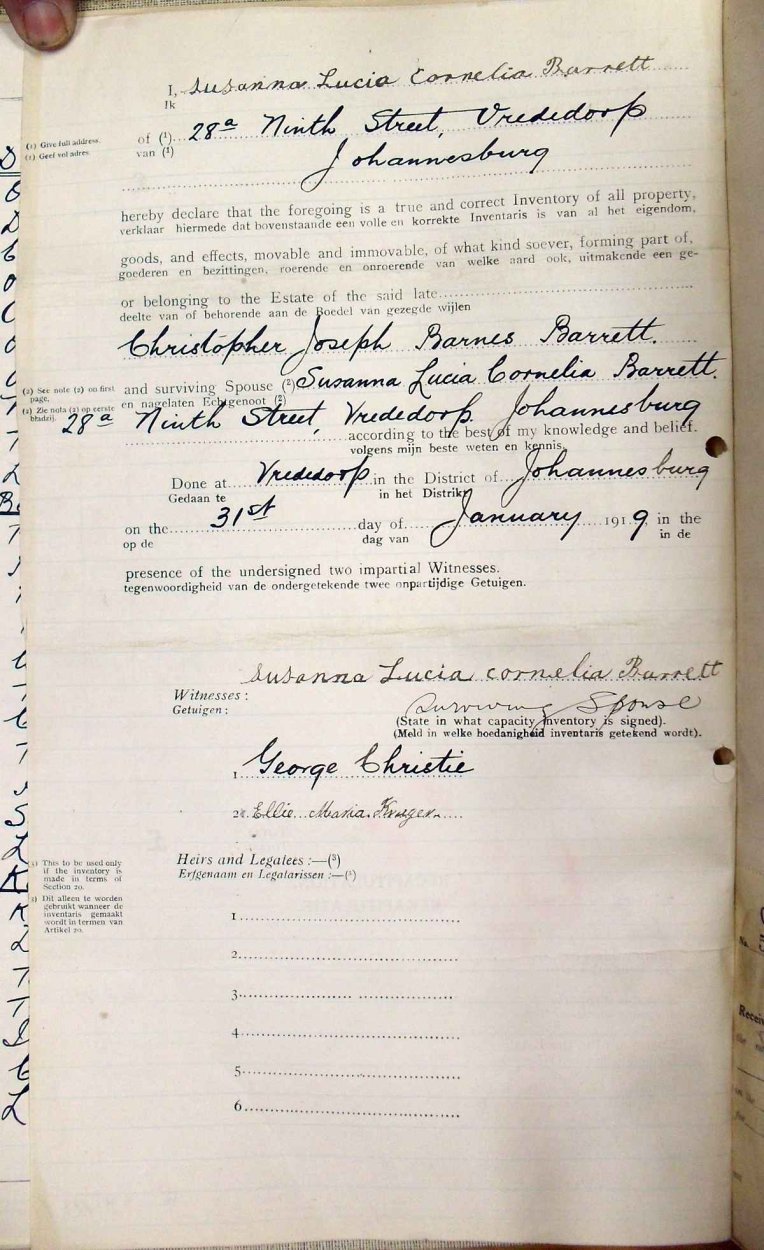 I, Susanna Lucia Cornelia Barrett
Ik
(1) Give full address.
(1) Geef vol adres.
of (1) 28a Ninth Street, Vrededorp
van (1)
Johannesburg
hereby declare that the foregoing is a true and correct Inventory of all property,
verklaar hiermede dat bovenstaande een volle en korrekte Inventaris is van al het eigendom,
goods, and effects, movable and immovable, of what kind soever, forming part of,
goederen en bezittingen, roerende en onroerende van welke aard ook, uitmakende een ge-
or belonging to the Estate of the said late
deelte van of behorende aan de Boedel van gezegde wijlen
Christopher Joseph Barnes Barrett.
(2) See note (2) on first
page.
(2) Zie nota (2) op eerste
bladzij.
and surviving Spouse (2) Susanna Lucia Cornelia Barrett.
en nagelaten Echtgenoot (2)
28a Ninth Street, Vrededorp. Johannesburg
according to the best of my knowledge and belief.
volgens mijn beste weten en kennis.
Done at Vrededorp in the District of Johannesburg
Gedaan te in het Distrikt
on the 31st day of January 1919 in the
op de dag van in de
presence of the undersigned two impartial Witnesses.
tegenwoordigheid van de ondergetekende twee onpartijdige Getuigen.
Susanna Lucia Cornelia Barrett
Witnesses :
Getuigen :
Surviving Spouse
(State in what capacity Inventory is signed).
(Meld in welke hoedanigheid inventaris getekend wordt).
1 George Christie
2 Ellie Maria Kruger
Heirs and Legatees :—(3)
Erfgenaam en Legatarissen :—(3)
(3) This to be used only
if the inventory is
made in terms of
Section 20.
(3) Dit alleen te worden
gebruikt wanneer de
inventaris gemaakt
wordt in termen van
Artikel 20.
1
2
3
4
5
6